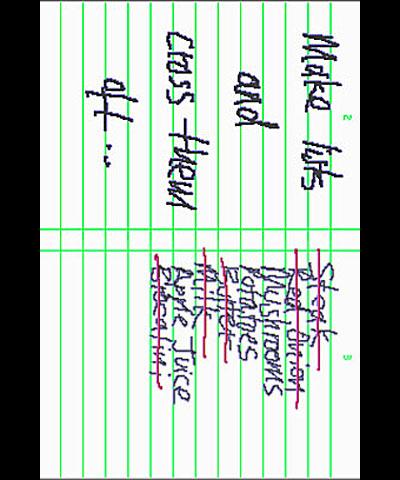 Make lists
and
cross them
off...
2
Steak
Red Onion
Mushrooms
Potatoes
Butter
Milk
Apple Juice
3